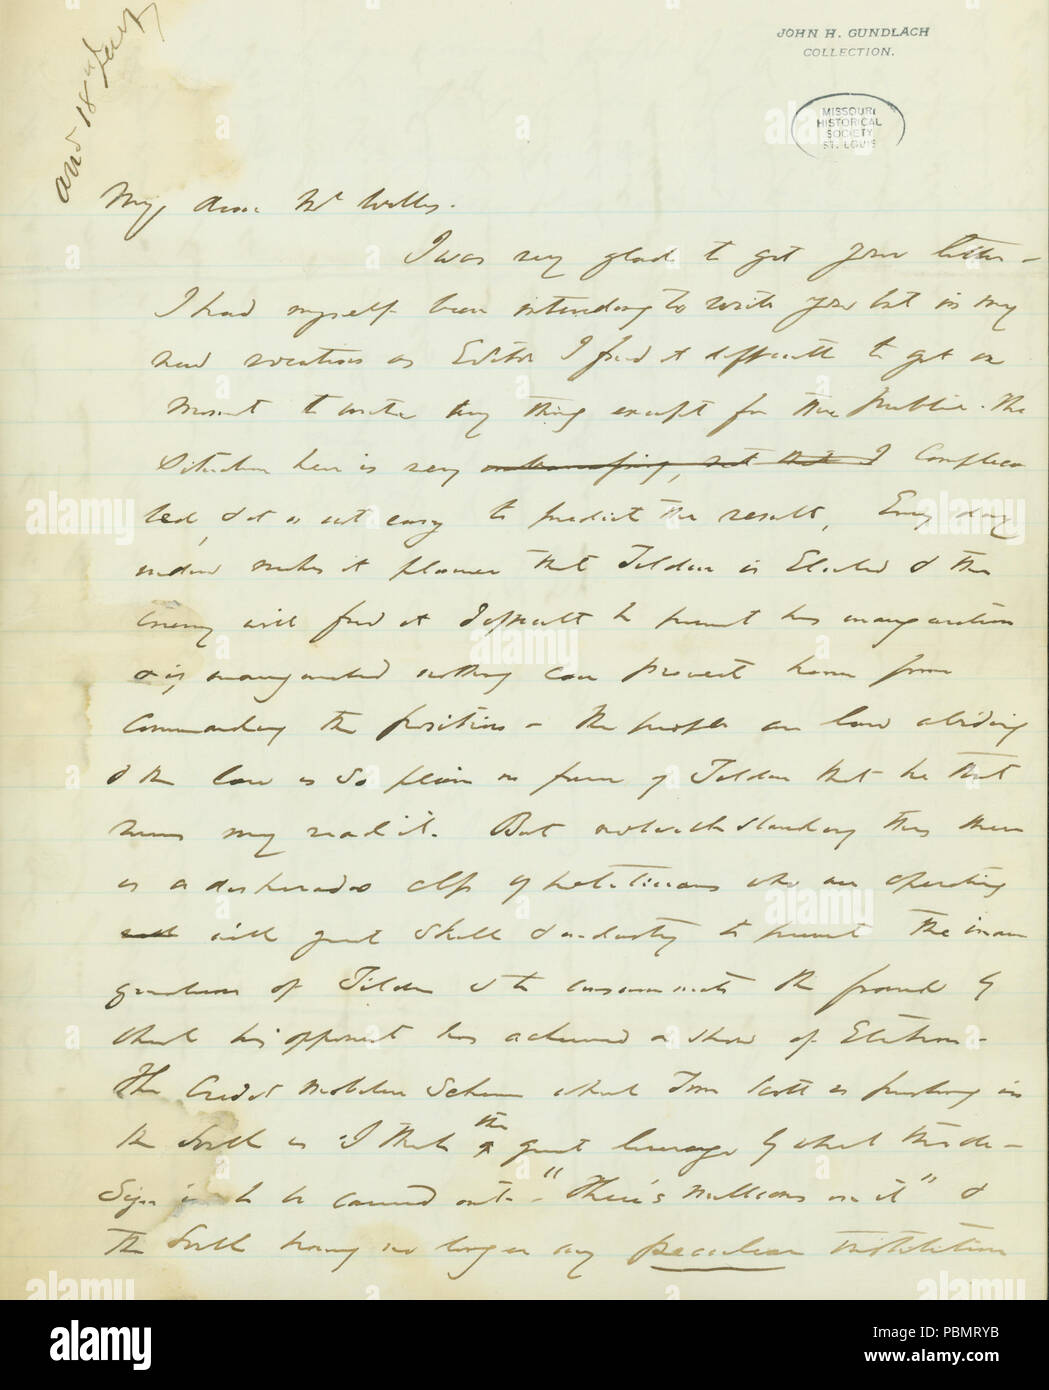 JOHN H. GUNDLACH
COLLECTION.
MISSOURI
HISTORICAL
SOCIETY
ST. LOUIS
and 18
My dear Mr Welles.
I was very glad to get your letter –
I had myself been intending to write you but in my
new vocation as Editor I find it difficult to get a
moment to write any thing except for the public. The
Situation here is very I complica
ted, & it is not easy to predict the result, Every day
makes it plainer that Tilden is Elected & the
enemy will find it difficult to prevent his inauguration
& if inaugurated nothing can prevent him from
commanding the position – The people are law abiding
& the law is so plain in favor of Tilden that he that
runs may read it. But notwithstanding this there
is a desperado of politicians who are operating
with great skill & industry to prevent the inau
guration of Tilden & to consummate the fraud by
which his opponent has achieved a show of Election –
The Credit Mobilier Scheme which Tom Scott is pushing in
the South is I think the great leverage by which this de–
sign is to be carried out – "There's millions in it" &
the South having no longer any peculiar institution
alamy
a
alamy
Image ID: PBMRYB
www.alamy.com